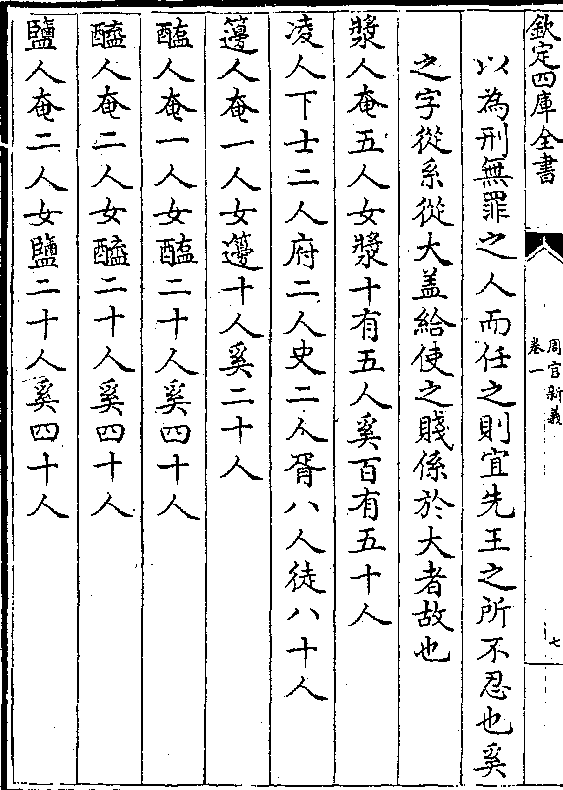 欽定四庫全書
周官新義
卷一
七
以為刑無罪之人而任之則宜先王之所不忍也奚
之字從系從大盖給使之賤係於大者故也
漿人奄五人女漿十有五人奚百有五十人
凌人下士二人府二人史二人胥八人徒八十人
籩人奄一人女籩十人奚二十人
醢人奄一人女醢二十人奚四十人
醯人奄二人女醯二十人奚四十人
鹽人奄二人女鹽二十人奚四十人